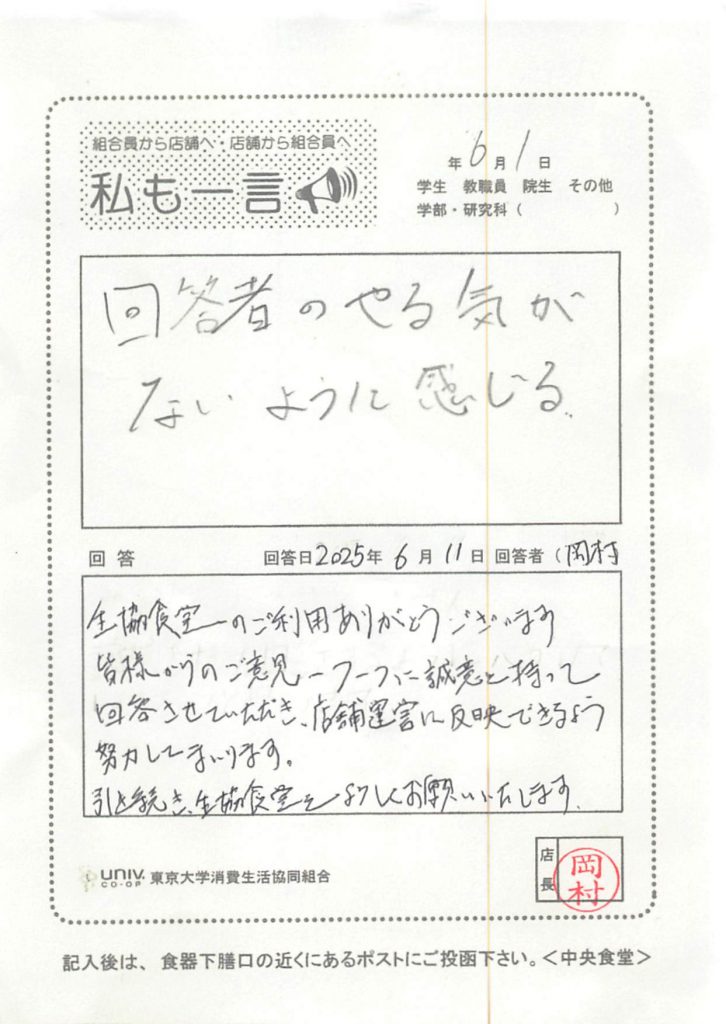 組合員から店舗へ・店舗から組合員へ
私も一言
年6月1日
学生 教職員 院生 その他
学部・研究科( )
回答者のやる気が
ないように感じる。
回答 回答日2025年6月11日 回答者(岡村
生協食堂のご利用ありがとうございます
皆様からのご意見一つ一つに誠意を持って
回答させていただき、店舗運営に反映できるよう
努力してまいります。
引き続き、生協食堂をよろしくお願いいたします。
店長
岡村
UNIV. CO-OP 東京大学消費生活協同組合
記入後は、食器下膳口の近くにあるポストにご投函下さい。<中央食堂>